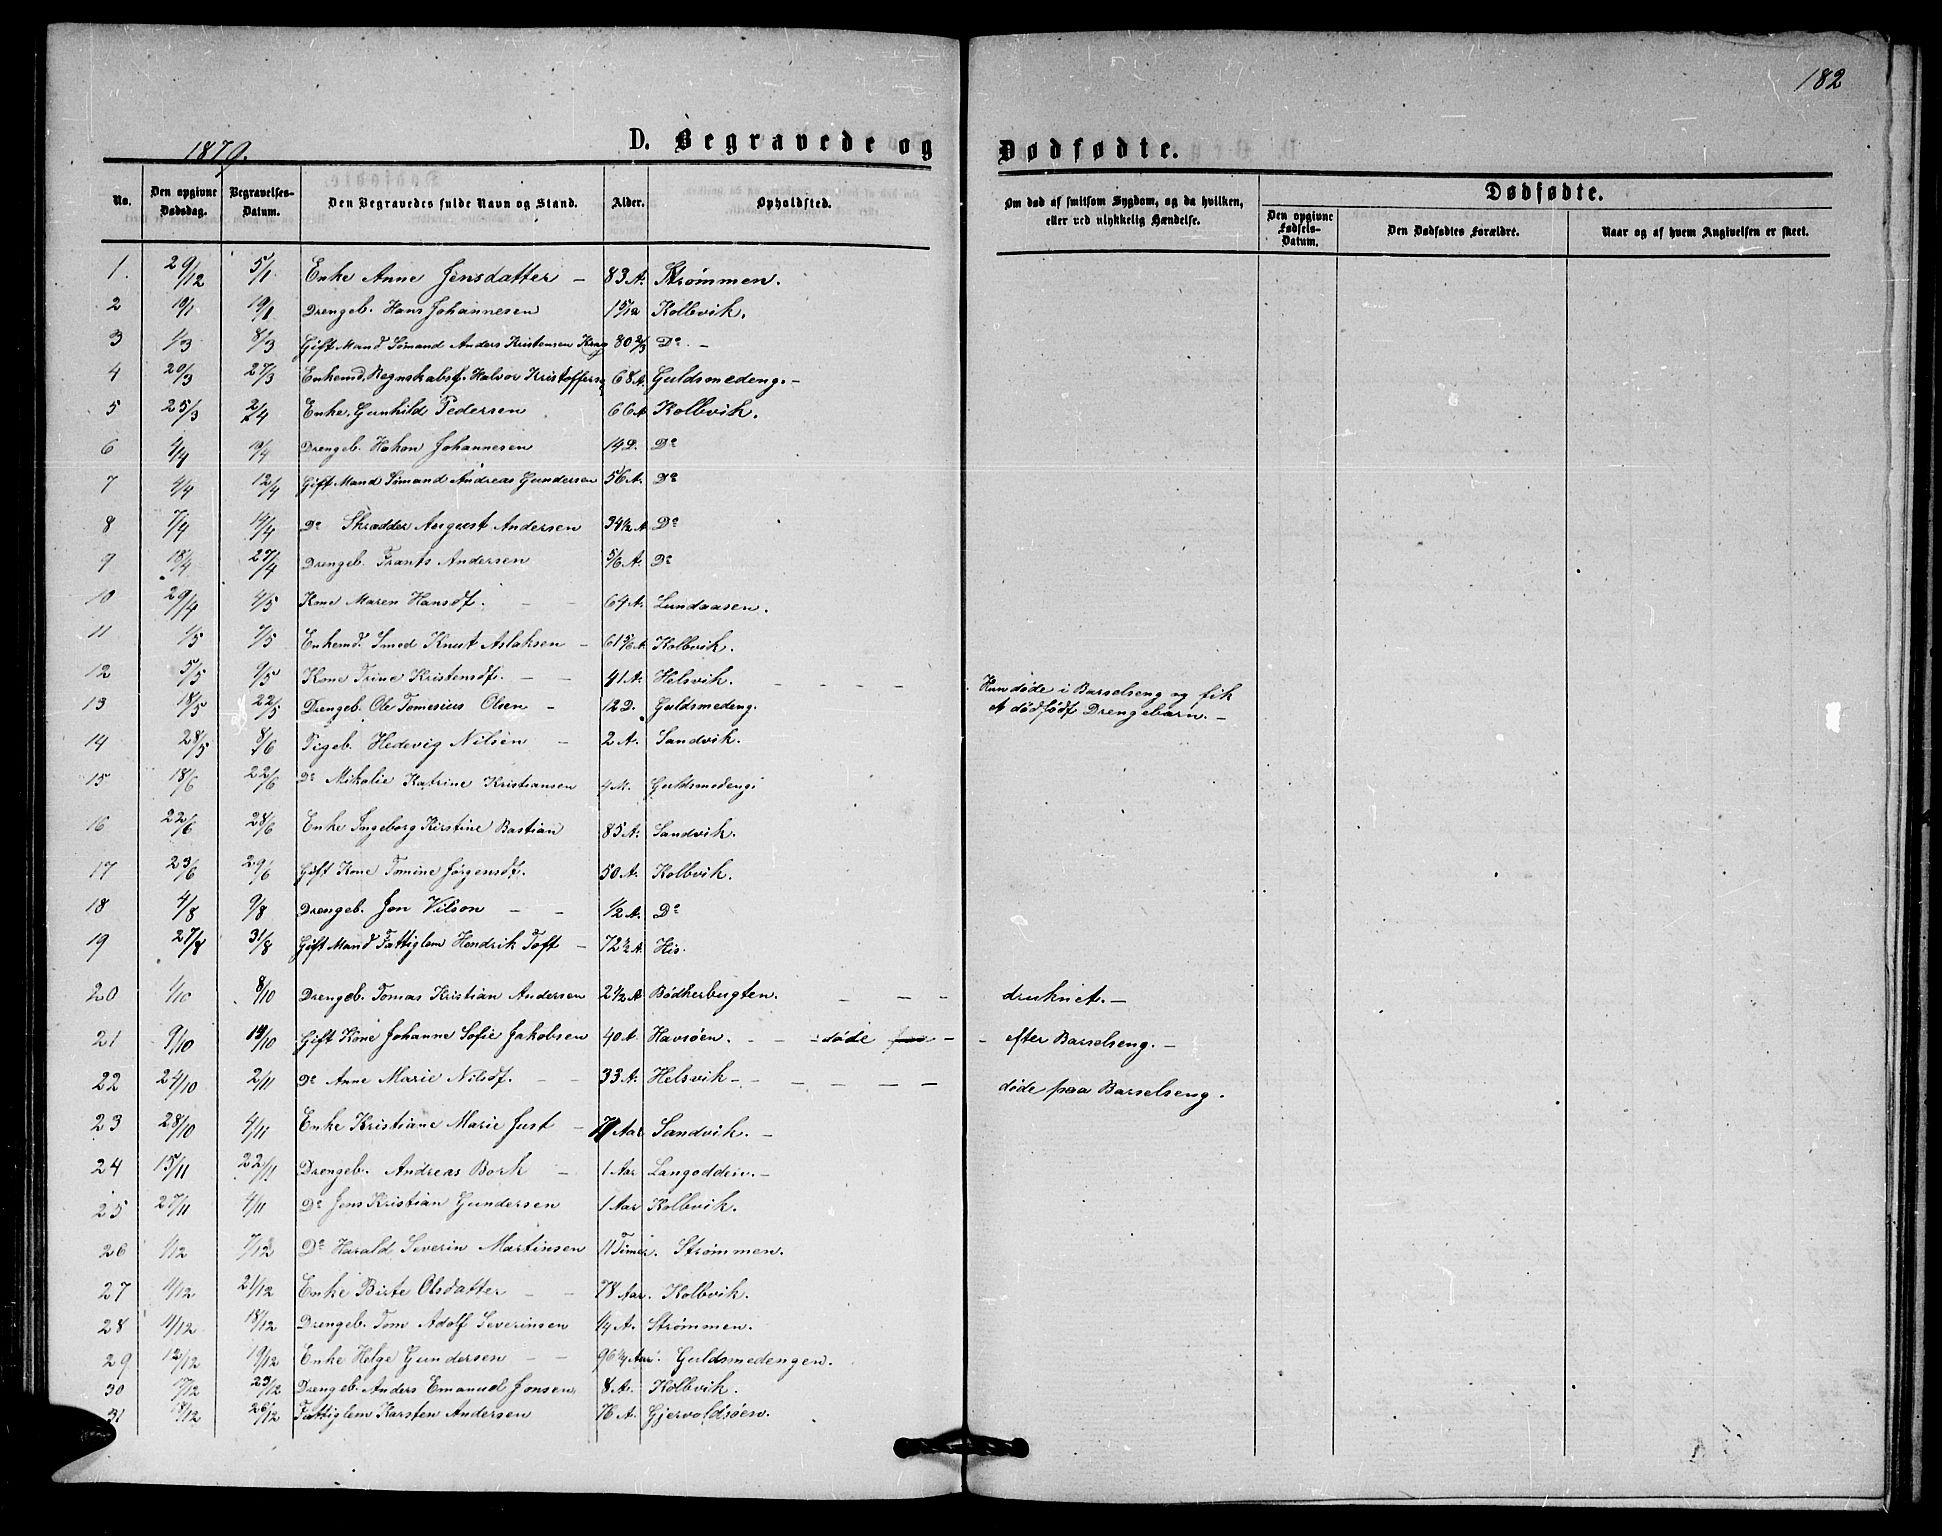 182
1879.
D. Begravede og Dødfødte.
No. Den opgivne Dødsdag. Begravelses-Datum. Den Begravedes fulde Navn og Stand. Alder. Opholdsted. Om død af smitsom Sygdom, og da hvilken, eller ved ulykkelig Hændelse. Dødfødte.
Den opgivne Fødsels-Datum. Den Dødfødtes Forældre. Naar og af hvem Angivelsen er skeet.
1. 29/12 5/1 Enke Anne Jensdatter – 83 A. Strømmen.
2 10/1 19/1 Drengeb. Hans Johannesen 1 5/12 Kolbvik.
3 1/3 8/3 Gift Mand Sømand Anders Kristensen 80 2/3 Do. –
4 20/3 27/3 Enkemd. Regnskabsf. Halvor Kristoffersen 68 A. Guldsmedeng. –
5 25/3 2/4 Enke. Gunhild Pedersen 66 A Kolbvik.
6 4/4 Drengeb. Hakon Johannesen 14 D. Do
7 4/4 12/4 Gift Mand Sømand Andreas Gundersen 56 A. Do
8 7/4 14/4 Do Skrædder August Andersen 34 1/2 A Do
9 18/4 27/4 Drengeb. Frants Andersen 5/6 A. Do
10 29/4 4/5 Kone Maren Hansdt. – – 64 A. Lundaasen.
11 1/5 7/5 Enkemd. Smed Knut Aslaksen – 61 5/6 A. Kolbvik.
12 5/5 9/5 Kone Trine Kristensdt. – – 41 A. Helsvik. – – – – Hun døde i Barselseng og fik
13 18/5 22/5 Drengeb. Ole Tomesius Olsen – 12 D. Guldsmedeng. et dødfødt Drengebarn. –
14 28/5 8/6 Pigeb. Hedevig Nilsen – 2 A. Sandvik.
15 18/6 22/6 Do Mikalie Katrine Kristiansen 4 M. Guldsmedeng.
16 22/6 28/6 Enke Ingeborg Kirstine Bastian 85 A. Sandvik.
17 23/6 29/6 Gift Kone Tomine Jørgensdt. 50 A. Kolbvik.
18 4/8 9/8 Drengeb. Jon Vilson – – 1/2 A. Do
19 27/8 31/8 Gift Mand Fattiglem Hendrik Toft – 72 1/2 A. His.
20 1/10 8/10 Drengeb. Tomas Kristian Andersen 2 1/2 A Bødkerbugten. – – – druknet. –
21 9/10 14/10 Gift Kone Johanne Sofie Jakobsen 40 A Havsøen. – – døde – – efter Barselseng. –
22 24/10 2/11 Do Anne Marie Nilsdt. – – 33 A. Helsvik – – – – – døde paa Barselseng.
23 28/10 4/11 Enke Kristiane Marie Just – 71 Aar Sandvik. –
24 15/11 22/11 Drengeb. Andreas Bork – 1 Aar Langodden. –
25 27/11 4/11 Do Jens Kristian Gundersen 1 Aar Kolbvik.
26 1/12 7/12 Do Harald Severin Martinsen 11 Timer. Strømmen.
27 11/12 21/12 Enke Birte Olsdatter – – 78 Aar. Kolbvik.
28 11/12 18/12 Drengeb. Tom Adolf Severinsen 1/4 A. Strømmen.
29 12/12 19/12 Enke Helge Gundersen – – 96 1/4 Aar. Guldsmedengen.
30 7/12 23/12 Drengeb. Anders Emanuel Jonsen 8 A. Kolbvik.
31 18/12 26/12 Fattiglem Karsten Andersen 76 A. Gjervoldsøen.